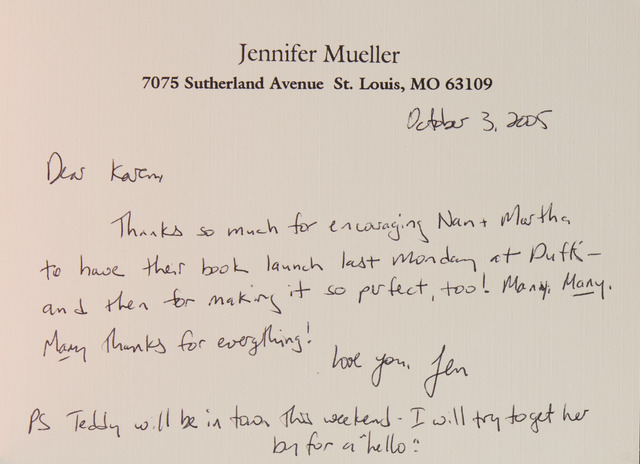 Jennifer Mueller
7075 Sutherland Avenue St. Louis, MO 63109
October 3, 2005
Dear Karen,
Thanks so much for encouraging Nan + Martha
to have their book launch last Monday at Duff's -
and then for making it so perfect, too! Many, Many,
Many thanks for everything!
Love you, Jen
PS Teddy will be in town this weekend - I will try to get her
by for a "hello"